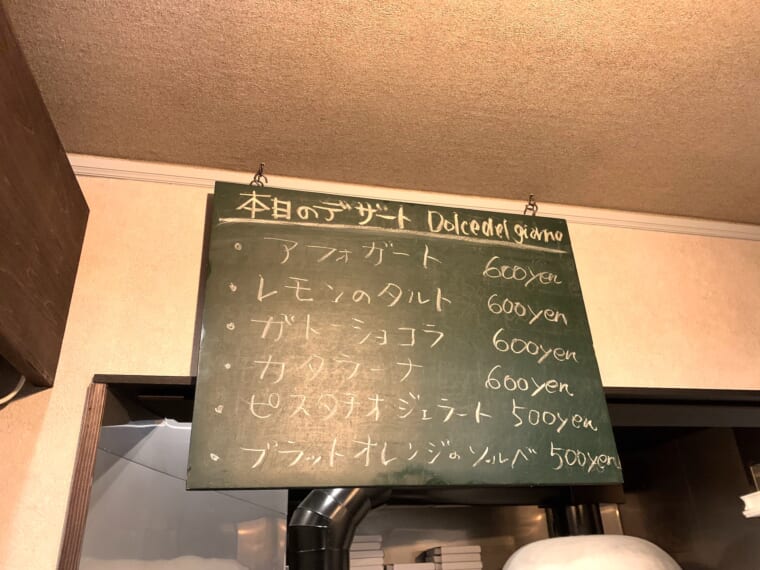 本日のデザート Dolce del giorno
・アフォガート 600yen
・レモンのタルト 600yen
・ガトーショコラ 600yen
・カタラーナ 600yen
・ピスタチオジェラート 500yen
・ブラッドオレンジのソルベ 500yen